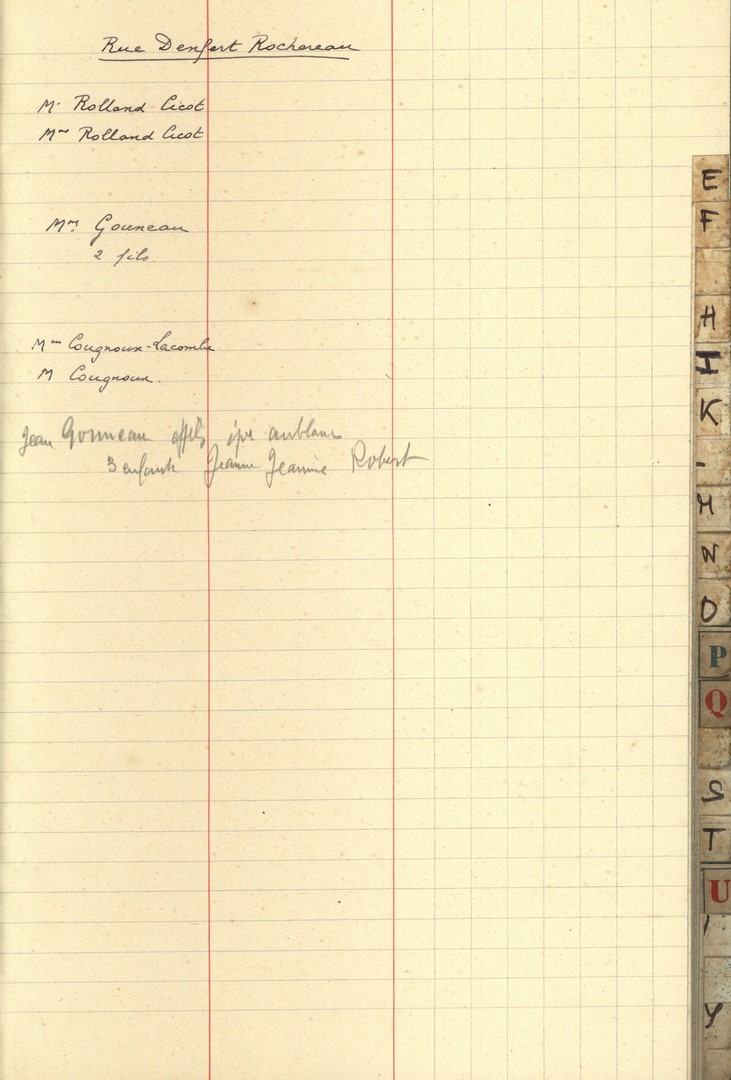 Rue Denfert Rochereau
Mr Rolland Cicot
Mme Rolland Cicot
Mme Gouneau
2 fils.
Mme Cougnoux-Lacombe
M Cougnoux.
Jean Gouneau
3 enfants Jeanne Jeannie Robert
E
F
H
I
K
M
N
O
P
Q
S
T
U
Y